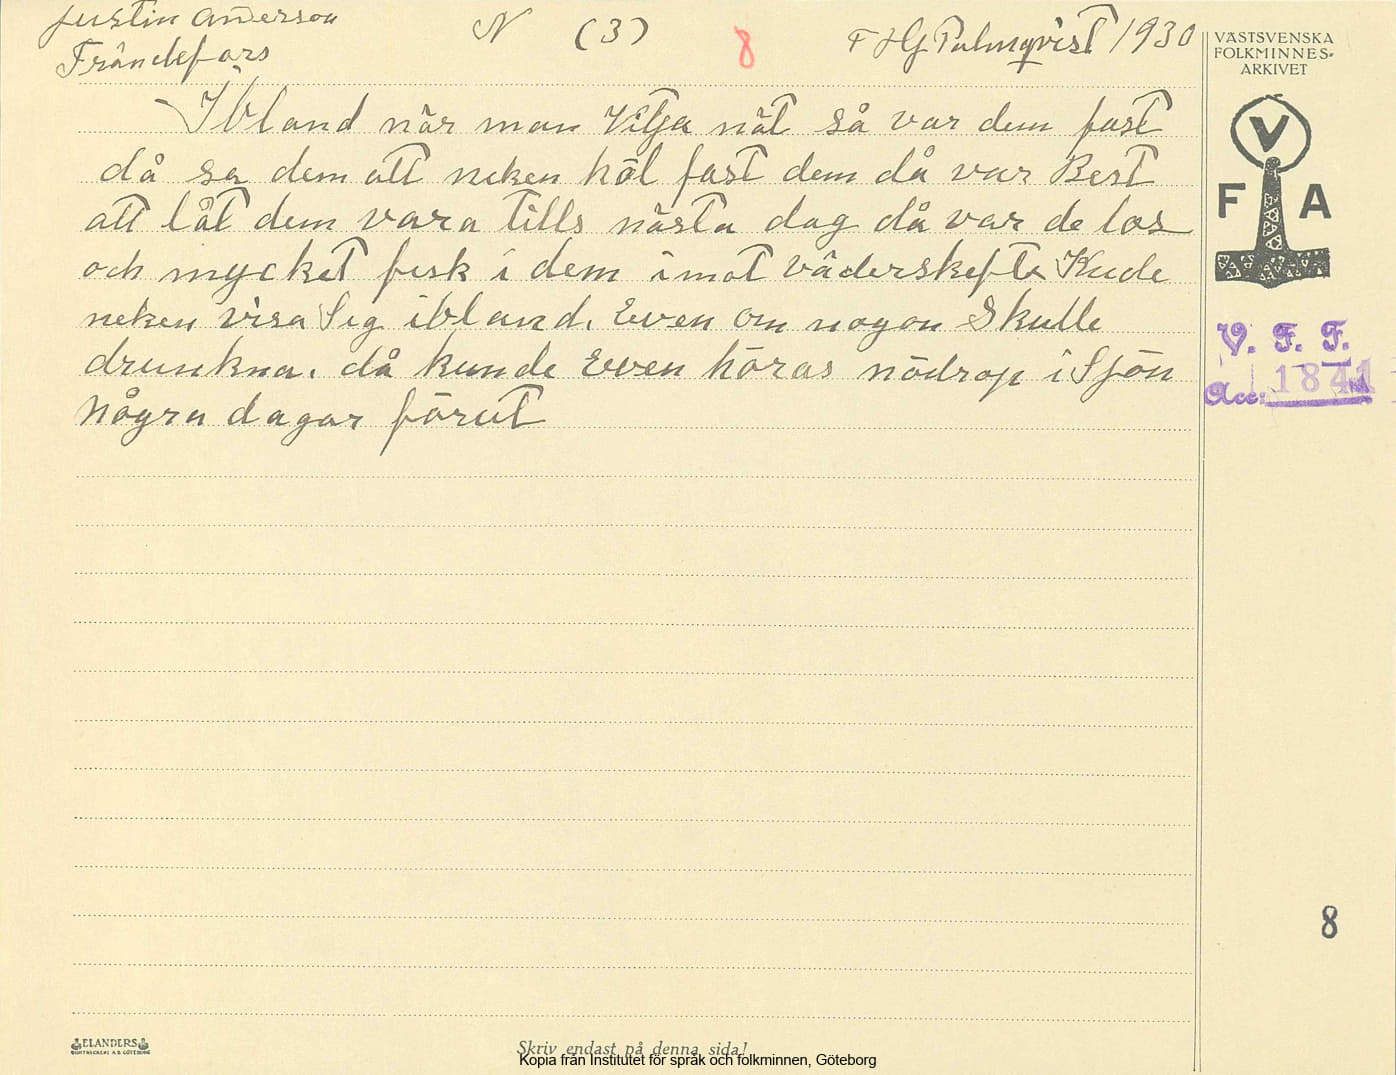 Justin Anderson N (3) 8 F Hg Palmqvist 1930
Frändefors
VÄSTSVENSKA
FOLKMINNES-
ARKIVET
V
F A
V. F. F.
Acc: 1841
Ibland när man Vitja nät så var dem fast
då sa dem att neken höl fast dem då var Best
att låt dem vara tills nästa dag då var de los
och mycket fisk i dem imot väderskefte Kude
neken visa Sig ibland. Even om nogon Skulle
drunkna. då kunde Even höras nödrop i Sjön
Några dagar förut
8
ELANDERS
BOKTRYCKERI A.B. GÖTEBORG
Skriv endast på denna sida!
Kopia från Institutet för språk och folkminnen, Göteborg